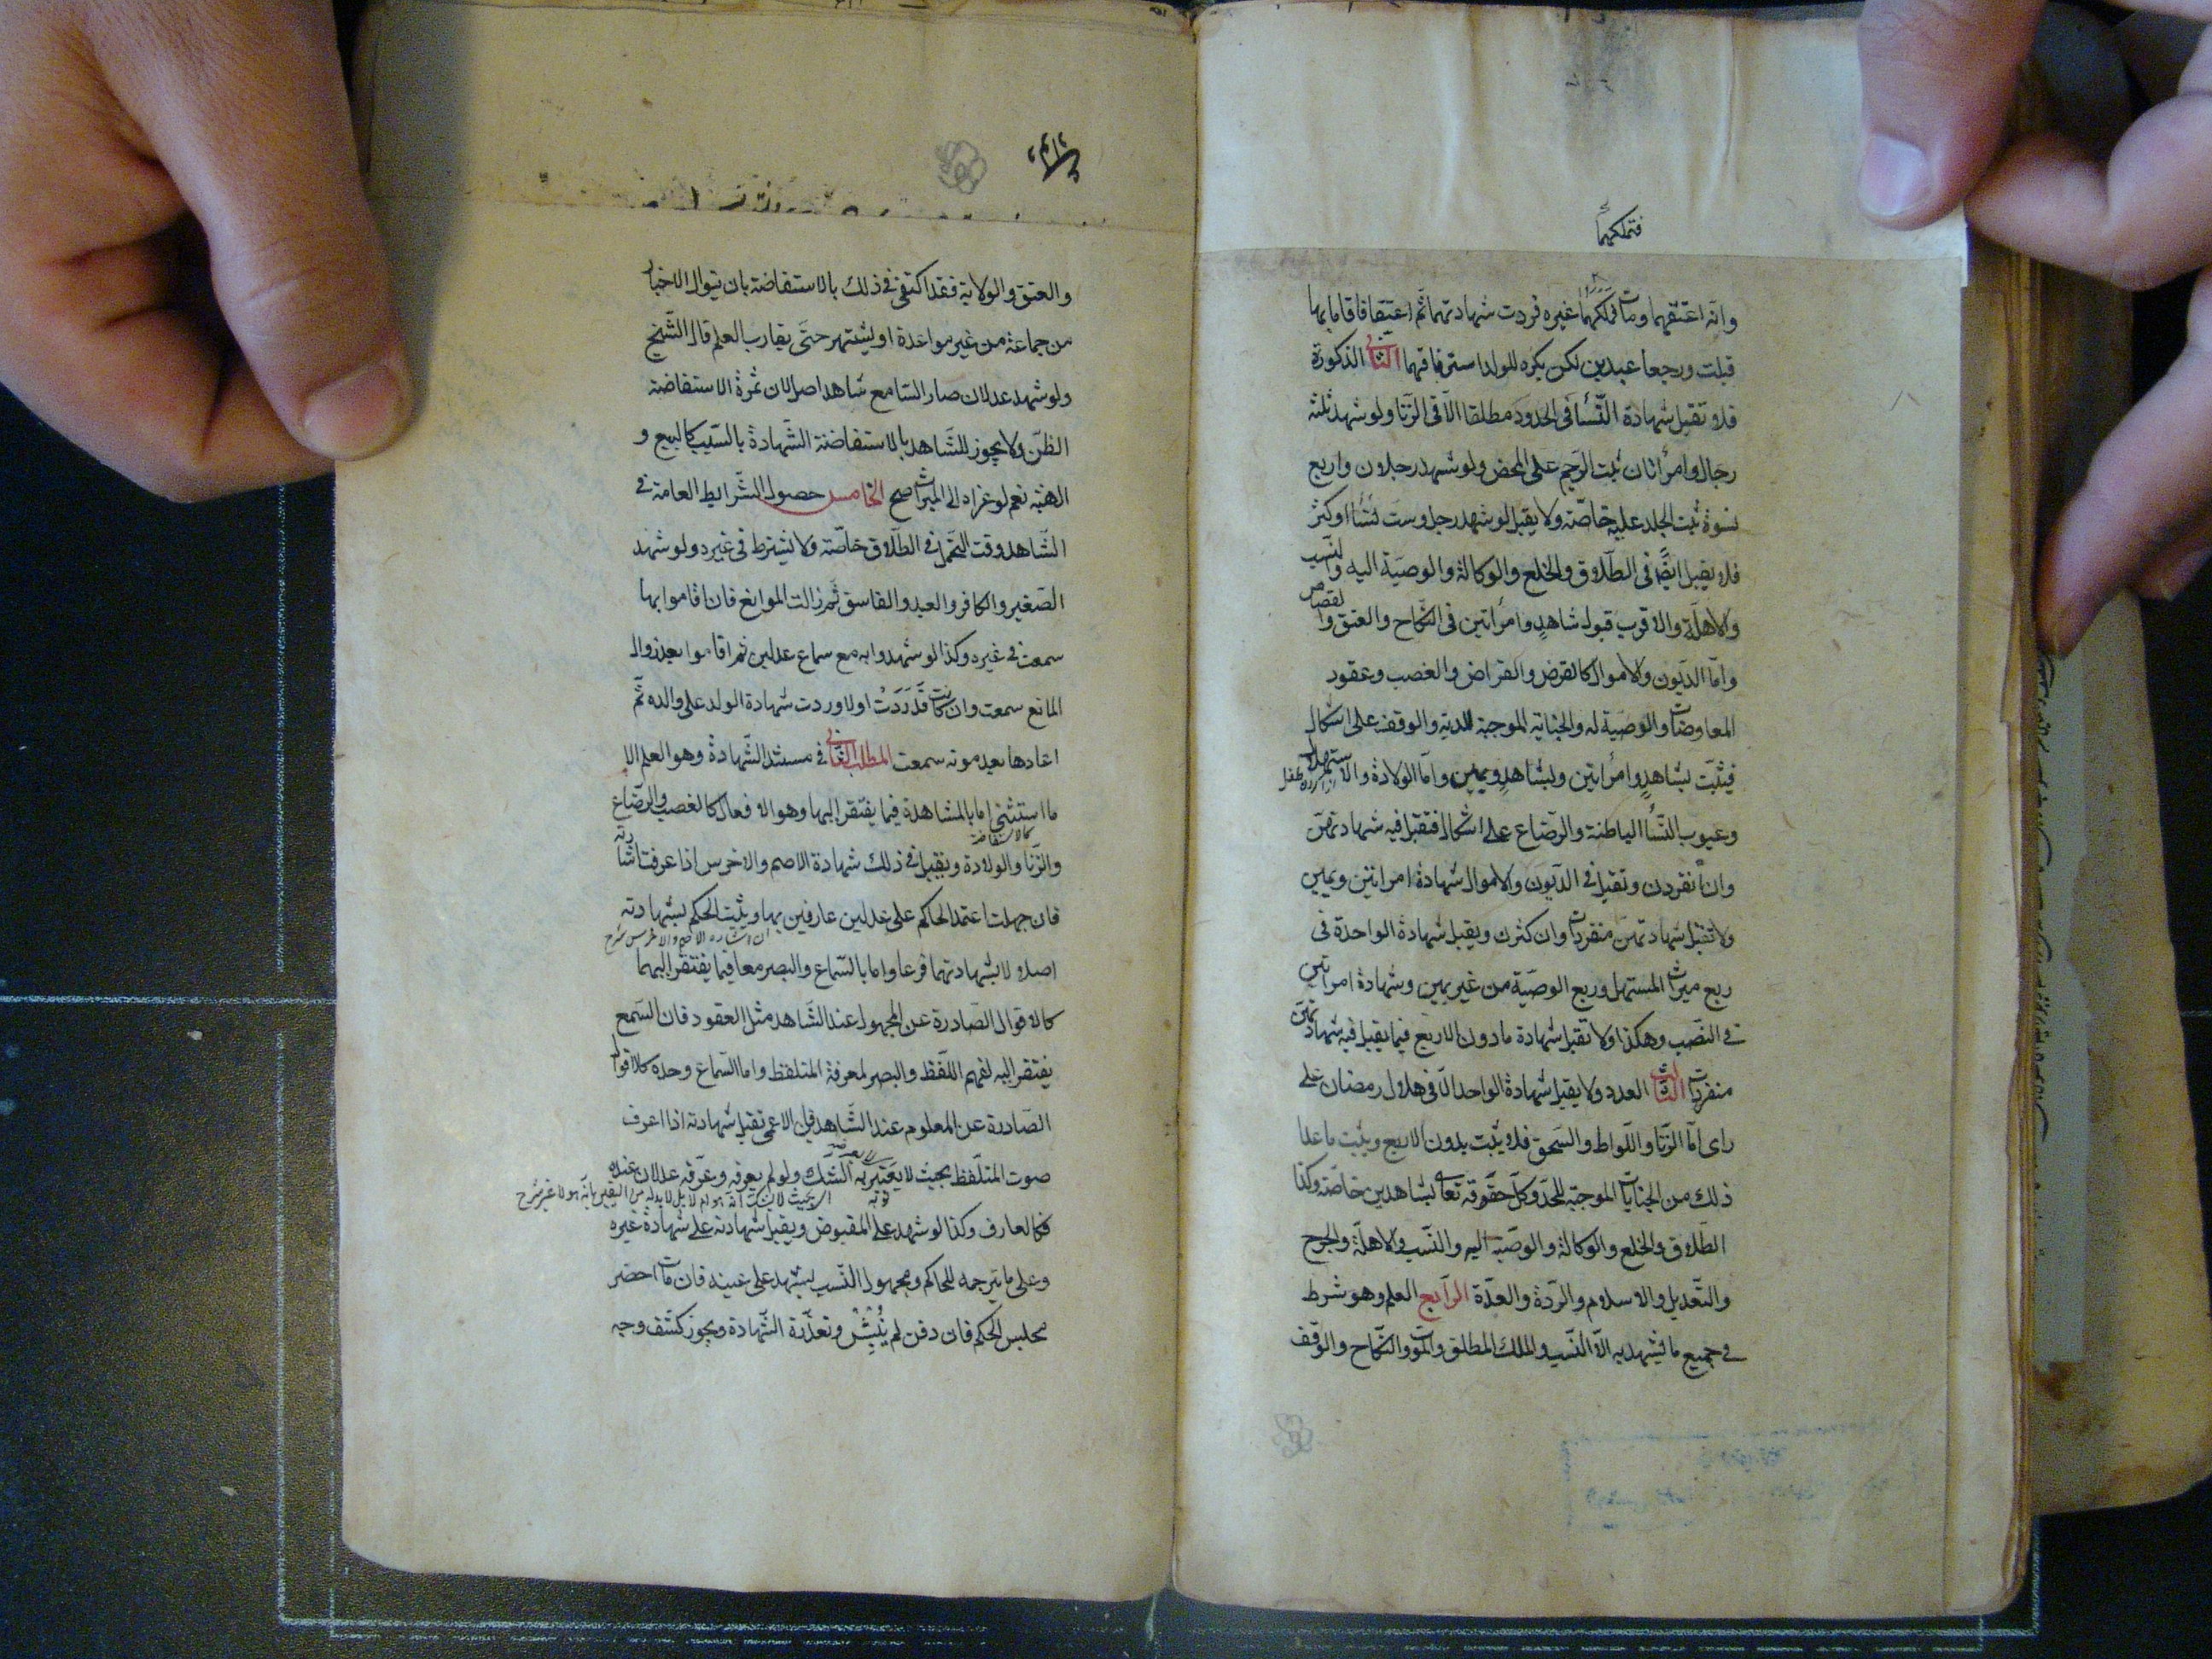 فتملكهما
وانه اعتقهما ومات فملكهما غيره فردت شهادتهما ثم اعتقا فاقاما بها
قبلت ورجعا عبدين لكن يكره للولد استرقاقهما الثاني الذكورة
فلا تقبل شهادة النسا فى الحدود مطلقا الا فى الزنا ولو شهد ثلثة
رجال وامرأتان ثبت الرجم على المحصن ولو شهد رجلان واربع
نسوة ثبت الجلد عليه خاصة ولا يقبل لو شهد رجل وست نسا او كثر
فلا يقبل ايضا فى الطلاق والخلع والوكالة والوصية اليه والنسب
والاهلة والاقرب قبول شاهد وامرأتين فى النكاح والعتق والقصاص
واما الديون والاموال كالقرض والقراض والغصب وعقود
المعاوضات والوصية له والجناية الموجبة للدية والوقف على اشكال
فيثبت بشاهد وامرأتين وبشاهد ويمين واما الولادة والاستهلال
وعيوب النسا الباطنة والرضاع على اشكال فتقبل فيه شهادتهن
وان انفردن وتقبل فى الديون والاموال شهادة امراتين ويمين
ولا تقبل شهادتهن منفردات وان كثرن ويقبل شهادة الواحدة فى
ربع ميراث المستهل وربع الوصية من غير يمين وشهادة امراتين
فى النصب وهكذا ولا تقبل شهادة مادون الاربع فيما يقبل فيه شهادتهن
منفردات الثالث العدد ولا يقبل شهادة الواحد الا فى هلال رمضان على
راى اما الزنا واللواط والسحق فلا يثبت بدون الاربع ويثبت ما عدا
ذلك من الجنايات الموجبة للحد وكل حقوقه تعالى بشاهدين خاصة وكذا
الطلاق والخلع والوكالة والوصية اليه والنسب والاهلة والجرح
والتعديل والاسلام والردة والعدة الرابع العلم وهو شرط
فى جميع ما يشهد به الا النسب والملك المطلق والموت والنكاح والوقف
والعتق والولاية فقد اكتفى فى ذلك بالاستفاضة بان يتوالى الاخبار
من جماعة من غير مواعدة او يشتهر حتى يقارب العلم قال الشيخ
ولو شهد عدلان صار السامع شاهد اصل لان ثمرة الاستفاضة
الظن ولا يجوز للشاهد بالاستفاضة الشهادة بالسبب كالبيع و
الهبة نعم لو عزاه الى الميراث صح الخامس حصول الشرايط العامة فى
الشاهد وقت التحمل فى الطلاق خاصة ولا يشترط فى غيره ولو شهد
الصغير والكافر والعبد والفاسق ثم زالت الموانع فان اقاموا بها
سمعت فى غيره وكذا لو شهدوا به مع سماع عدلين ثم اقاموا بعد زوال
المانع سمعت وان كانت قد ردت اولا ولو ردت شهادة الولد على والده ثم
اعادها بعد موته سمعت المطلب الثانى فى مستند الشهادة وهو العلم الا
ما استثنى اما بالمشاهدة فيما يفتقر اليها وهو الافعال كالغصب والرضاع
والزنا والولادة ويقبل فى ذلك شهادة الاصم والاخرس اذا عرفت اشارته
فان جهلت اعتمد الحاكم على عدلين عارفين بها ويثبت الحكم بشهادته
اصلا لا بشهادتهما فرعا واما بالسماع والبصر معا فيما يفتقر اليهما
كالاقوال الصادرة عن المجهول عند الشاهد مثل العقود فان السمع
يفتقر اليه لفهم اللفظ والبصر لمعرفة المتلفظ واما السماع وحده كالاقوال
الصادرة عن المعلوم عند الشاهد فان الاعمى تقبل شهادته اذا عرف
صوت المتلفظ بحيث لا يعتريه الشك ولو لم يعرفه وعرفه عدلان عنده
فكالعارف وكذا لو شهد على المقبوض ويقبل شهادته على شهادة غيره
وعلى ما يترجمه للحاكم ومجهول النسب يشهد على عينه فان مات احضر
مجلس الحكم فان دفن لم ينبش وتعذرة الشهادة ويجوز كشف وجه